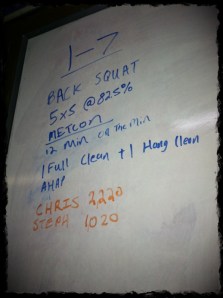 1-7
BACK SQUAT
5x5 @ 82.5%
METCON
12 Min On The Min
1 Full Clean + 1 Hang Clean
AHAP
CHRIS 2,220
STEPH 1,020